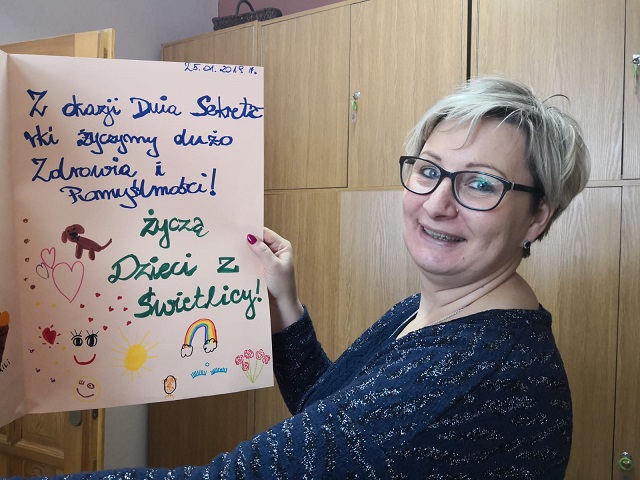 25.01.2019 r.
Z okazji Dnia Sekreta
rki życzymy dużo
Zdrowia i
Pomyślności!
życzą
Dzieci z
Świetlicy!